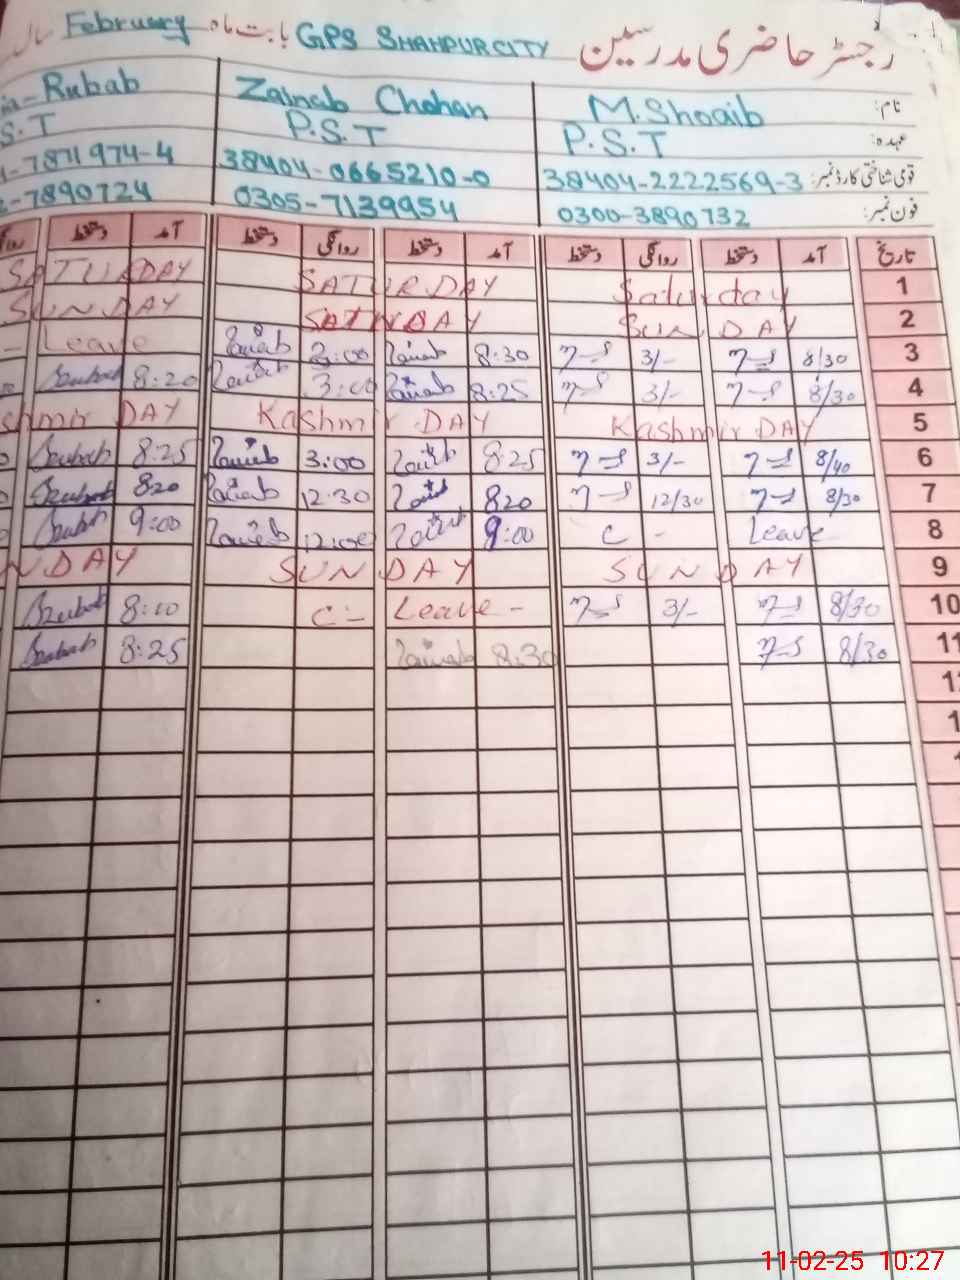 رجسٹر حاضری مدرسین GPS SHAHPUR CITY بابت ماہ February سال
نام: M. Shoaib Zainab Chohan Rubab
عہدہ: P.S.T P.S.T S.T
قومی شناختی کارڈ نمبر: 38404-2222569-3 38404-0665210-0 -7871974-4
فون نمبر: 0300-3890732 0305-7139954 -7890724
تاریخ آمد دستخط روانگی دستخط آمد دستخط روانگی دستخط آمد دستخط
1 Saturday SATURDAY SATURDAY
2 SUNDAY SUNDAY
3 8/30 3/- 8:30 Zainab 3:00 Zainab Leave -
4 8/30 3/- 8:25 Zainab 3:00 Zainab 8:20 Rubab
5 Kashmir DAY Kashmir DAY shmir DAY
6 8/40 3/- 8:25 Zainab 3:00 Zainab 8:25 Rubab
7 8/30 12/30 8:20 Zainab 12:30 Zainab 8:20 Rubab
8 Leave C - 9:00 Zainab 12:00 Zainab 9:00 Rubab
9 SUNDAY SUNDAY NDAY
10 8/30 3/- Leave - C - 8:10 Rubab
11 8/30 8:30 Zainab 8:25 Rubab
11-02-25 10:27